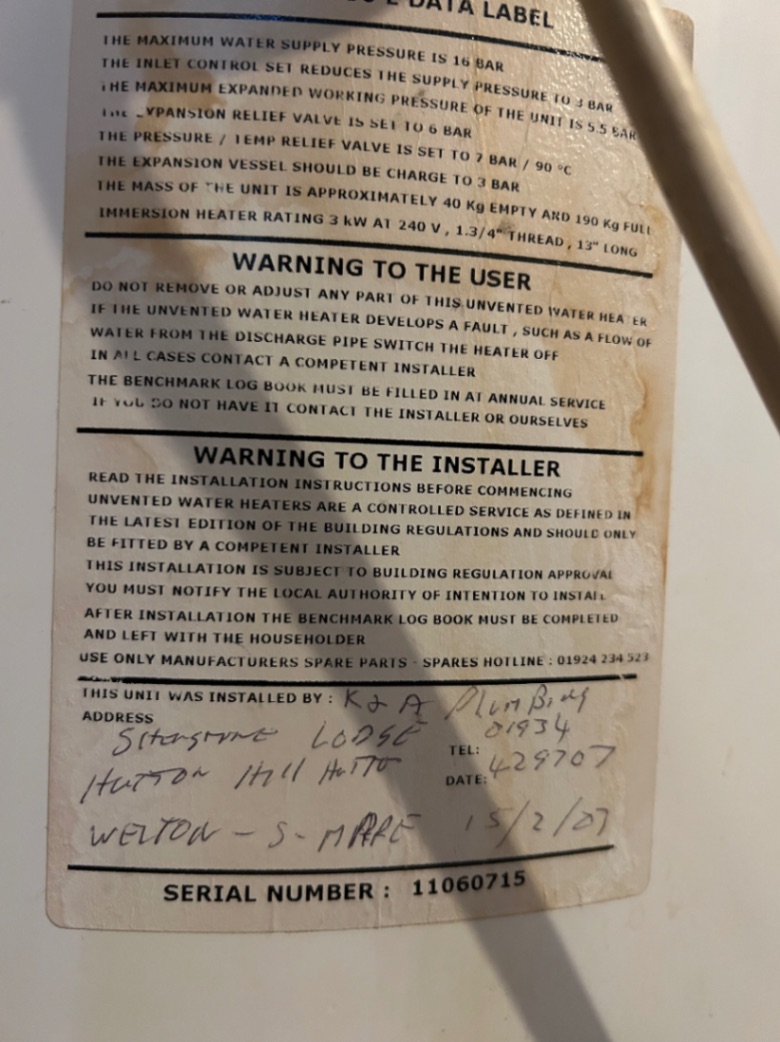 DATA LABEL
THE MAXIMUM WATER SUPPLY PRESSURE IS 16 BAR
THE INLET CONTROL SET REDUCES THE SUPPLY PRESSURE TO 3 BAR
THE MAXIMUM EXPANDED WORKING PRESSURE OF THE UNIT IS 5.5 BAR
THE EXPANSION RELIEF VALVE IS SET TO 6 BAR
THE PRESSURE / TEMP RELIEF VALVE IS SET TO 7 BAR / 90 °C
THE EXPANSION VESSEL SHOULD BE CHARGE TO 3 BAR
THE MASS OF THE UNIT IS APPROXIMATELY 40 Kg EMPTY AND 190 Kg FULL
IMMERSION HEATER RATING 3 kW AT 240 V , 1.3/4" THREAD , 13" LONG
WARNING TO THE USER
DO NOT REMOVE OR ADJUST ANY PART OF THIS UNVENTED WATER HEATER
IF THE UNVENTED WATER HEATER DEVELOPS A FAULT , SUCH AS A FLOW OF
WATER FROM THE DISCHARGE PIPE SWITCH THE HEATER OFF
IN ALL CASES CONTACT A COMPETENT INSTALLER
THE BENCHMARK LOG BOOK MUST BE FILLED IN AT ANNUAL SERVICE
IF YOU DO NOT HAVE IT CONTACT THE INSTALLER OR OURSELVES
WARNING TO THE INSTALLER
READ THE INSTALLATION INSTRUCTIONS BEFORE COMMENCING
UNVENTED WATER HEATERS ARE A CONTROLLED SERVICE AS DEFINED IN
THE LATEST EDITION OF THE BUILDING REGULATIONS AND SHOULD ONLY
BE FITTED BY A COMPETENT INSTALLER
THIS INSTALLATION IS SUBJECT TO BUILDING REGULATION APPROVAL
YOU MUST NOTIFY THE LOCAL AUTHORITY OF INTENTION TO INSTALL
AFTER INSTALLATION THE BENCHMARK LOG BOOK MUST BE COMPLETED
AND LEFT WITH THE HOUSEHOLDER
USE ONLY MANUFACTURERS SPARE PARTS - SPARES HOTLINE : 01924 234 523
THIS UNIT WAS INSTALLED BY : K & A PLUMBING
ADDRESS LODGE TEL: 01934 429707
HUTTON HILL HUTTO DATE:
WELTON - S - MARE 15/2/07
SERIAL NUMBER : 11060715